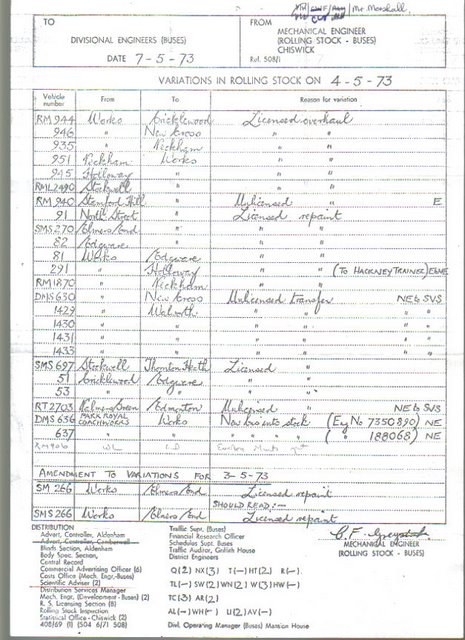 Mr Marshall.
TO
DIVISIONAL ENGINEERS (BUSES)
DATE 7-5-73
FROM
MECHANICAL ENGINEER
(ROLLING STOCK - BUSES)
CHISWICK
Ref. 508/1
VARIATIONS IN ROLLING STOCK ON 4-5-73
Vehicle number From To Reason for variation
RM 944 Works Cricklewood Licensed overhaul
946 " New Cross " "
935 " Peckham " "
951 Peckham Works " "
945 Holloway " " "
RML 2490 Stockwell " " "
RM 940 Stamford Hill " Unlicensed " E
91 North Street " Licensed repaint
SMS 270 Elmers End " " "
82 Edgware " " "
81 Works Edgware " "
291 " Holloway " " (TO HACKNEY TRAINER)
RM 1870 " Peckham " "
DMS 630 " New Cross Unlicensed transfer NE6 SVS
1429 " Walworth " "
1430 " " " "
1431 " " " "
1433 " " " "
SMS 697 Stockwell Thornton Heath Licensed "
51 Cricklewood Edgware " "
53 " " " "
RT 2703 Palmers Green Edmonton Unlicensed " NE6 SVS
DMS 636 PARK ROYAL COACHWORKS Works New bus into stock (Eng No 7350890) NE
637 " " " " " " ( " 188068) NE
AMENDMENT TO VARIATIONS FOR 3-5-73
SM 266 Works Elmers End Licensed repaint
SHOULD READ:-
SMS 266 Works Elmers End Licensed repaint
DISTRIBUTION
Advert. Controller, Aldenham
Advert. Controller, Camberwell
Blinds Section, Aldenham
Body Spec. Section,
Central Record
Commercial Advertising Officer (6)
Costs Office (Mech. Engr.-Buses)
Scientific Adviser (2)
Distribution Services Manager
Mech. Engr. (Development - Buses) (2)
R. S. Licensing Section (8)
Rolling Stock Inspection
Statistical Office - Chiswick (2)
408/69 (1) 504 6/71 508)
Traffic Supt. (Buses)
Financial Research Officer
Schedules Supt. Buses
Traffic Auditor, Griffith House
District Engineers
Q(2) NX(3) T(-) HT(2) R(-)
TL(-) SW(2) WN(2) W(3) HW(-)
TC(3) AR(2)
AL(-) WH(-) U(2) AV(-)
Divl. Operating Manager (Buses) Mansion House
MECHANICAL ENGINEER
(ROLLING STOCK - BUSES)